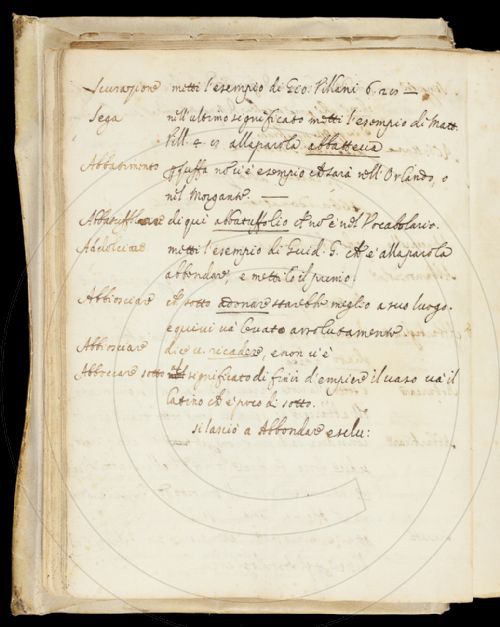 metti l'esempio di Gio: Villani 6. 210 —
Sega nell'ultimo significato metti l'esempio di Matt.
Vill. 4. alla parola abbatteva
Abbatimento zuffa no v'è esempio ch̃ sarà nell'Orlando, o
nel Morgante. —
di qui abbatuffolio ch̃ nō è nel Vocabolario.
Adolciare metti l'esempio di Guid. G. ch̃ è alla parola
abbondare, e mettilo il primo.
Abbiosciare ch̃ sotto adornare starebbe meglio a suo luogo.
e quivi va levato assolutamente
Abbiosciare dice v. ricadere, e non v'è
sotto nel significato di finir d'empiere il vaso va il
latino ch̃ è poco di sotto.
si lasciò a Abbondare esclu: